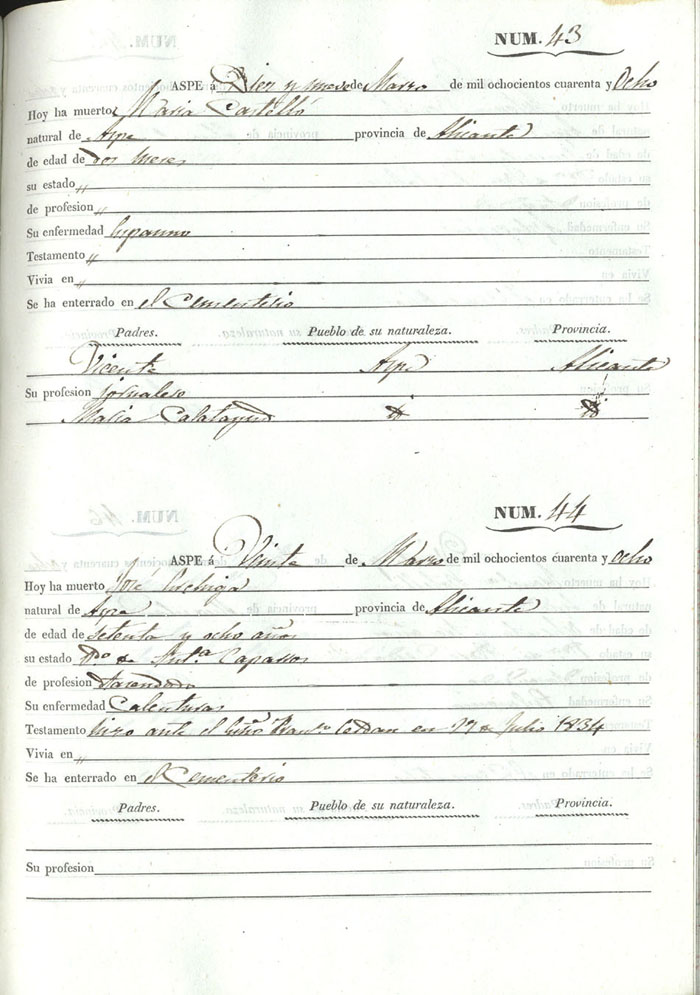 NUM. 43
ASPE á Diez y nueve de Marzo de mil ochocientos cuarenta y Ocho
Hoy ha muerto Maria Castelló
natural de Aspe provincia de Alicante
de edad de dos meses
su estado "
de profesion "
Su enfermedad
Testamento "
Vivia en "
Se ha enterrado en el Cementerio
Padres. Pueblo de su naturaleza. Provincia.
Vicente Aspe Alicante
Su profesion jornalero
Maria Calatayud id id
NUM. 44
ASPE á Veinte de Marzo de mil ochocientos cuarenta y Ocho
Hoy ha muerto José
natural de Aspe provincia de Alicante
de edad de setenta y ocho años
su estado Vdo de Ant.ª
de profesion
Su enfermedad Calenturas
Testamento hizo ante el en de Julio 1834
Vivia en "
Se ha enterrado en el Cementerio
Padres. Pueblo de su naturaleza. Provincia.
Su profesion